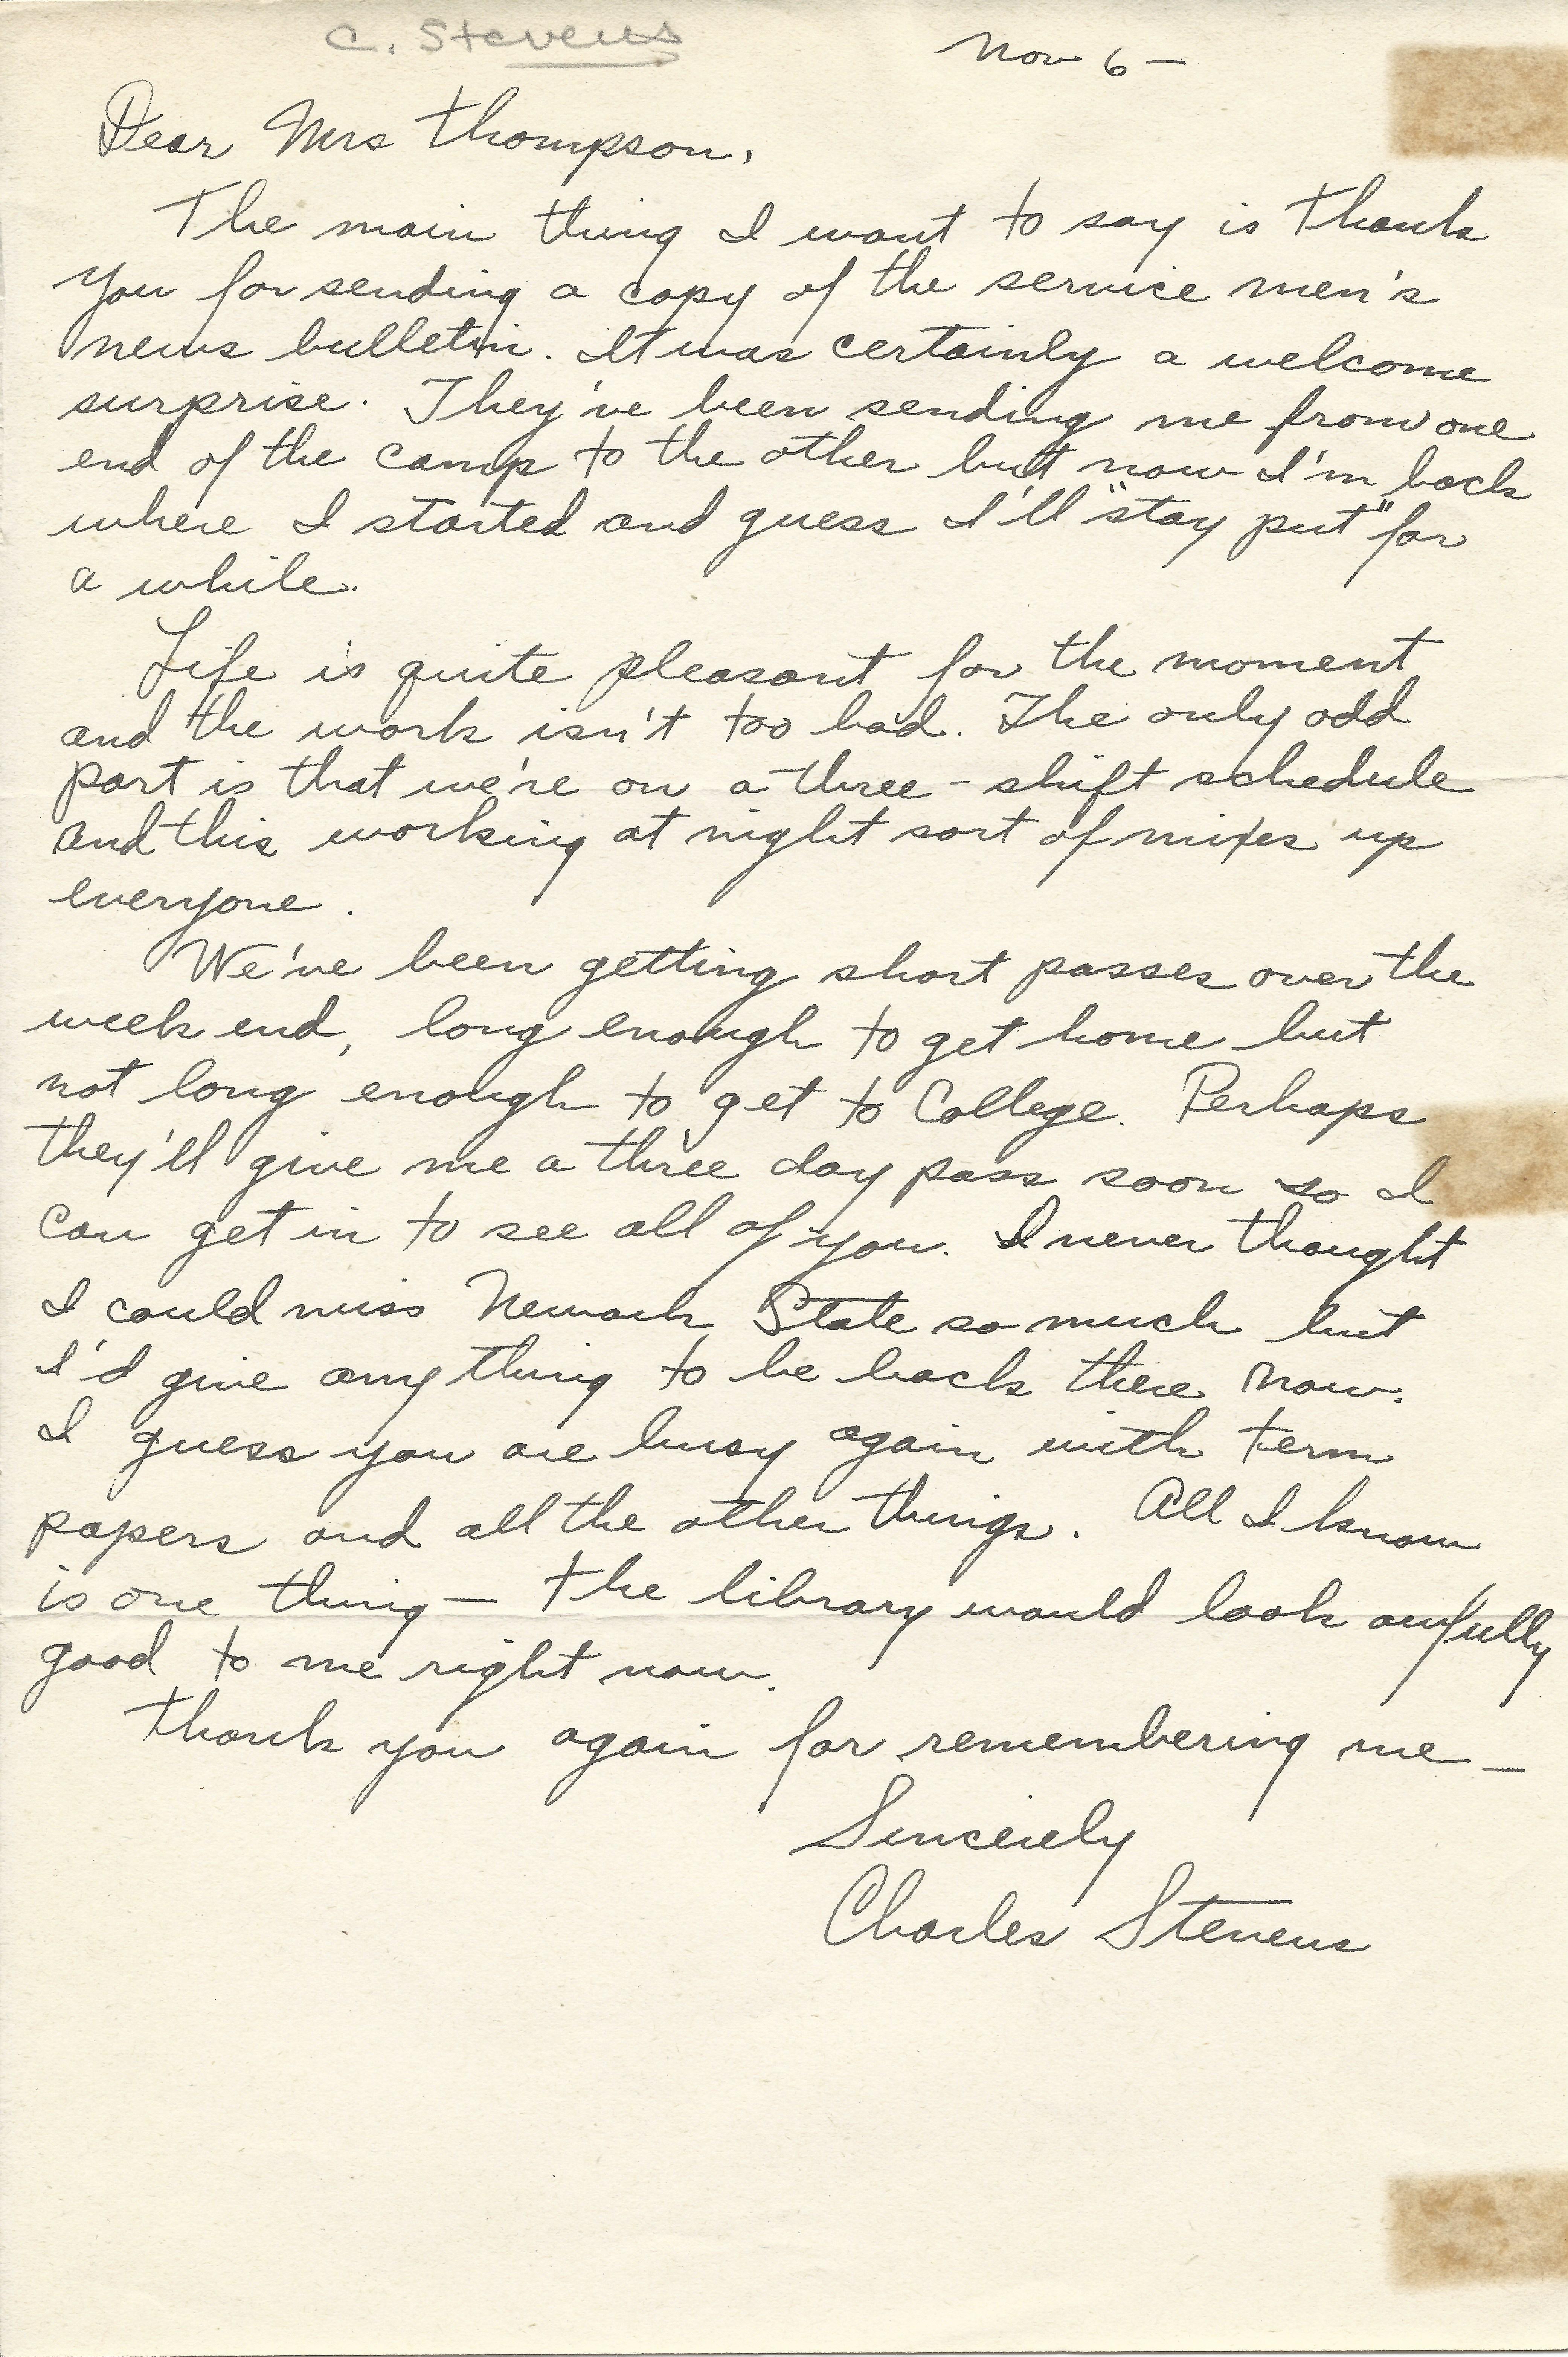 C. Stevens
Nov 6 —
Dear Mrs Thompson,
The main thing I want to say is thank
you for sending a copy of the service men's
news bulletin. It was certainly a welcome
surprise. They've been sending me from one
end of the camp to the other but now I'm back
where I started and guess I'll "stay put" for
a while.
Life is quite pleasant for the moment
and the work isn't too bad. The only odd
part is that we're on a three-shift schedule
and this working at night sort of mixes up
everyone.
We've been getting short passes over the
week end, long enough to get home but
not long enough to get to College. Perhaps
they'll give me a three day pass soon so I
can get in to see all of you. I never thought
I could miss Newark State so much but
I'd give anything to be back there now.
I guess you are busy again with term
papers and all the other things. All I know
is one thing — the library would look awfully
good to me right now.
Thank you again for remembering me —
Sincerely
Charles Stevens